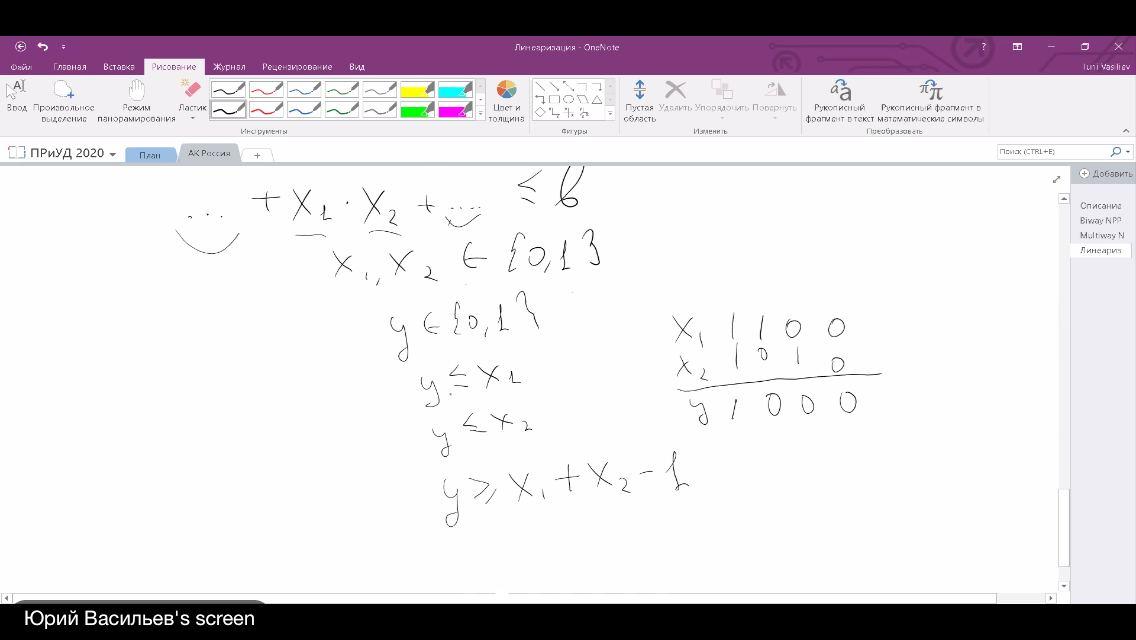 Линеаризация - OneNote
?
Файл Главная Вставка Рисование Журнал Рецензирование Вид
Iurii Vasiliev
Ввод
Произвольное выделение
Режим панорамирования
Ластик
Цвет и толщина
Пустая область
Удалить
Упорядочить
Повернуть
Рукописный фрагмент в текст
Рукописный фрагмент в математические символы
Инструменты
Фигуры
Изменить
Преобразовать
ПРиУД 2020 План АК Россия +
Поиск (CTRL+E)
Добавить
Списание
Biway NPP
Multiway N
Линеариз
... + x₁ · x₂ + ... ≤ b
x₁, x₂ ∈ {0,1}
y ∈ {0,1}
y ≤ x₁
y ≤ x₂
y ≥ x₁ + x₂ - 1
x₁ 1 1 0 0
x₂ 1 0 1 0
y 1 0 0 0
Юрий Васильев's screen